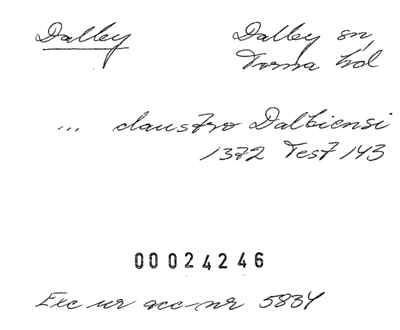 Dalby
Dalby sn,
Torna hd
... claustro Dalbiensi
1372 Test 143
00024246
Exc ur acc-nr 5834